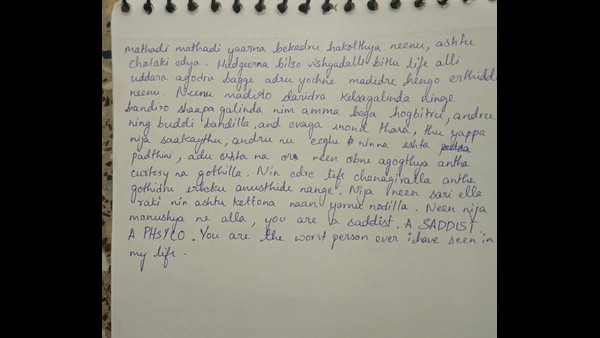 mathadi mathadi yaarna bekadru hakolthya neenu, ashtu
chalaki idya. Hudgurna bilso vishyadalli bittu life alli
uddara agodru bagge adru yochne madidre hengo irthidde
neenu. Neenu madiro daridra kelsagalinda ninge
bandiro shaapa galinda nim amma bega hogbitru, andru
ning buddi bandilla, and evaga inond thara, thu yappa
nija saakaythu, andru nu eeglu ninna ishta
padthini, adu ishta na or neen obne agogthya antha
curtosy na gothilla. Nin edre life chanagiralla anthe
gothidru irbeku anusthide nange. Nija neen sari ella
raki nin ashtu kettona naan yarnu nodilla. Neen nija
manushya ne alla, you are a saddist. A SADDIST
A PHSYCO. You are the worst person ever i have seen in
my life.